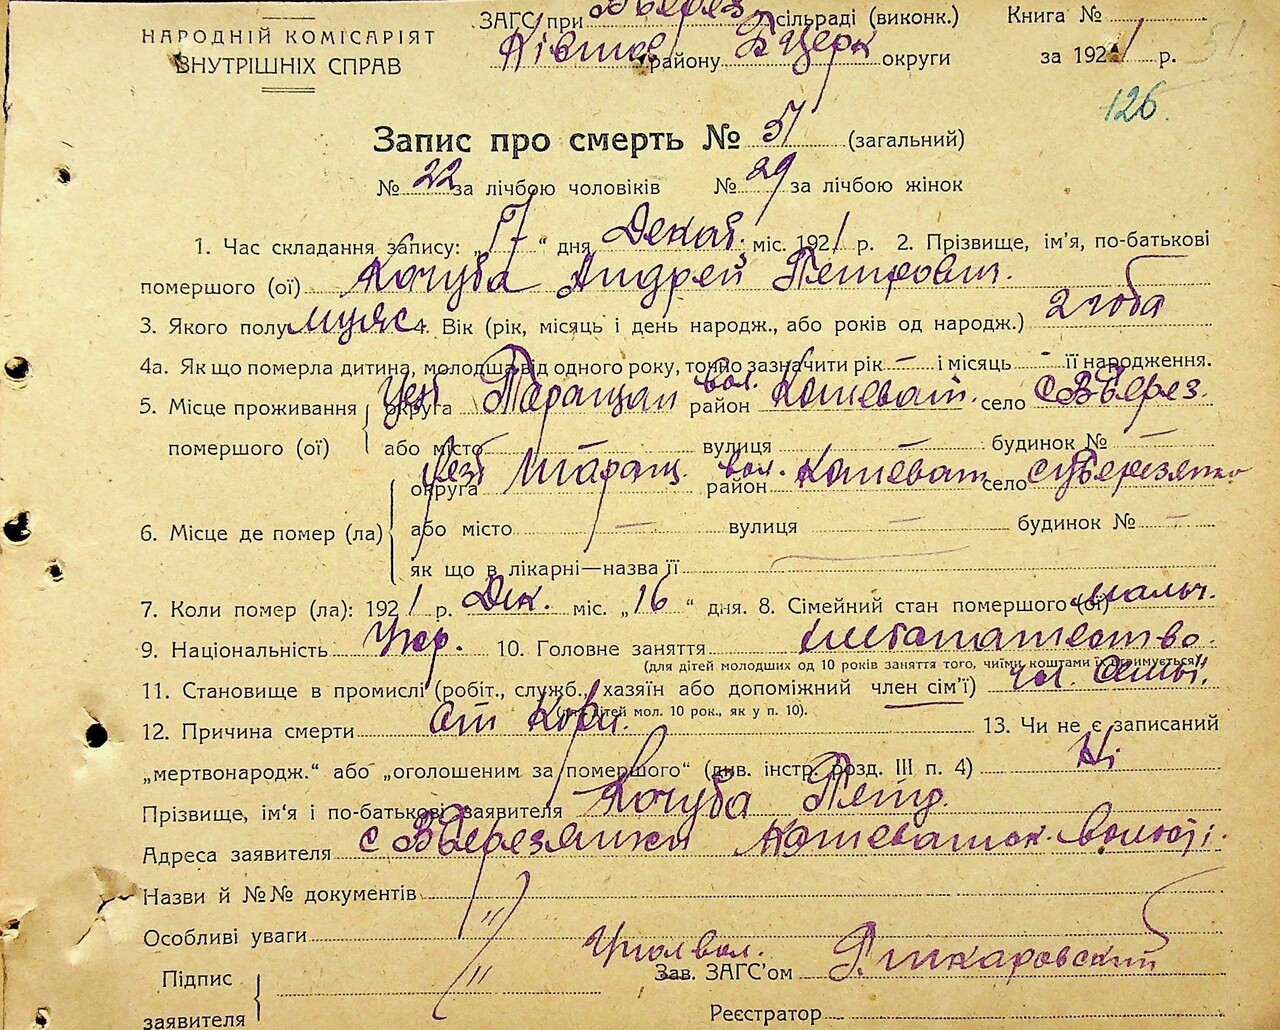 НАРОДНІЙ КОМІСАРІЯТ
ВНУТРІШНІХ СПРАВ
ЗАГС при сільраді (виконк.)
району Б Церк округи
Книга №
за 1921 р.
51
126
Запис про смерть № 51 (загальний)
№ 22 за лічбою чоловіків № 29 за лічбою жінок
1. Час складання запису: „17“ дня Декаб. міс. 1921 р. 2. Прізвище, ім’я, по-батькові
помершого (ої) Кочуба Андрей Петрович.
3. Якого полу Мужс 4. Вік (рік, місяць і день народж., або років од народж.) 2 года
4а. Як що померла дитина, молодша від одного року, точно зазначити рік — і місяць — її народження.
5. Місце проживання помершого (ої) Уезд округа Таращан вол. район Кошеват. село В Берез.
або місто вулиця — будинок № —
6. Місце де помер (ла) Уезд округа Таращ. вол. район Кошеват село Березянка
або місто — вулиця — будинок № —
як що в лікарні—назва її
7. Коли помер (ла): 1921 р. Дек. міс. „16“ дня. 8. Сімейний стан помершого (ої) мальч.
9. Національність Укр. 10. Головне заняття хлебопашество.
(для дітей молодших од 10 років заняття того, чиїми коштами їх утримується)
11. Становище в промислі (робіт., служб., хазяїн або допоміжний член сім’ї) чл. семьи.
(для дітей мол. 10 рок., як у п. 10).
12. Причина смерти от Кори. 13. Чи не є записаний
„мертвонародж.“ або „оголошеним за помершого“ (див. інстр. розд. III п. 4) Ні
Прізвище, ім‘я і по-батькові заявителя Кочуба Петр.
Адреса заявителя с В Березянки Кошеватск. волості.
Назви й №№ документів
Особливі уваги "
Підпис заявителя "
Зав. ЗАГС’ом
Реєстратор